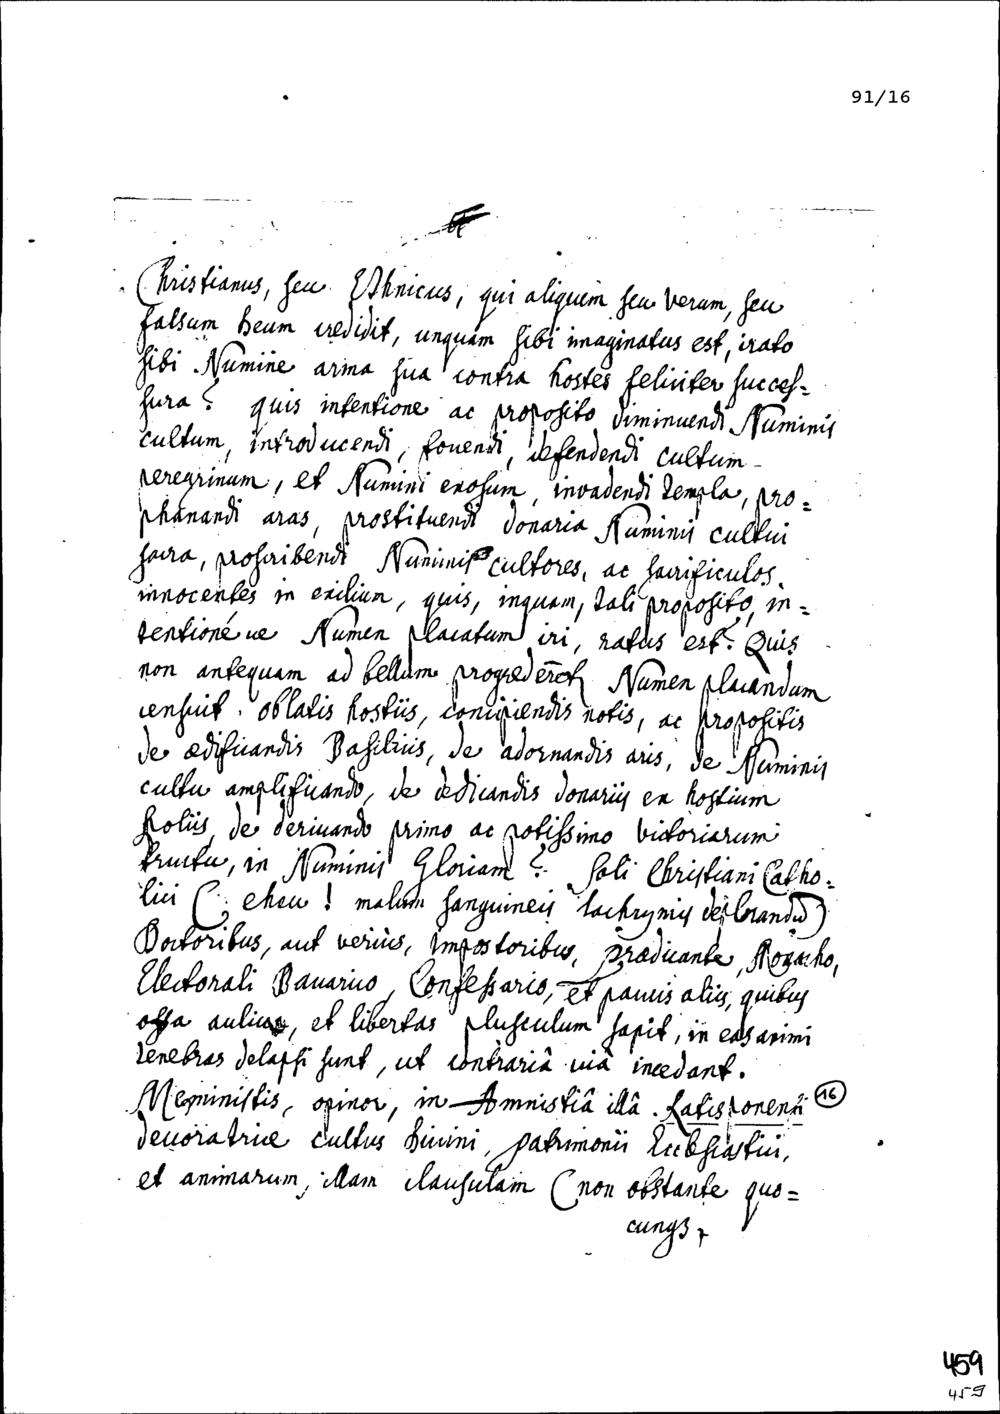 91/16
Christianus, seu Ethnicus, qui aliquem seu verum, seu
falsum Deum credidit, unquam sibi imaginatus est, irato
sibi Numine arma sua contra hostes feliciter succes=
sura? quis intentione ac proposito diminuendi Numinis
cultum, introducendi, fovendi, defendendi cultum
peregrinum, et Numini exosum, invadendi templa, pro=
phanandi aras, prostituendi donaria Numinis cultui
sacra, proscribendi Numinis cultores, ac sacrificulos
innocentes in exilium, quis, inquam, tali proposito, in=
tentioné ve Numen placatum iri, ratus est? Quis
non antequam ad bellum progrederet Numen placandum
censuit oblatis hostiis, concipiendis votis, ac propositis
de ædificandis Basilicis, de adornandis aris, de Numinis
cultu amplificando, de dedicandis donariis ex hostium
spoliis, de derivando primo ac potissimo victoriarum
fructu, in Numinis Gloriam? Soli Christiani Catho=
lici (: eheu! malum sanguineis lachrymis deplorandum)
Doctoribus, aut verius, impostoribus, prædicante, Monacho,
Electorali Bavarico, Confessario, et paucis aliis, quibus
offa aulica, et libertas plusculum sapit, in eas animi
tenebras delapsi sunt, ut contrariâ viâ incedant.
Meministis, opinor, in Amnistiâ illâ Ratisponensi 16
devoratrice cultus Divini, patrimonii Ecclesiastici,
et animarum, illam clausulam (non obstante quo=
cunq3
459
459